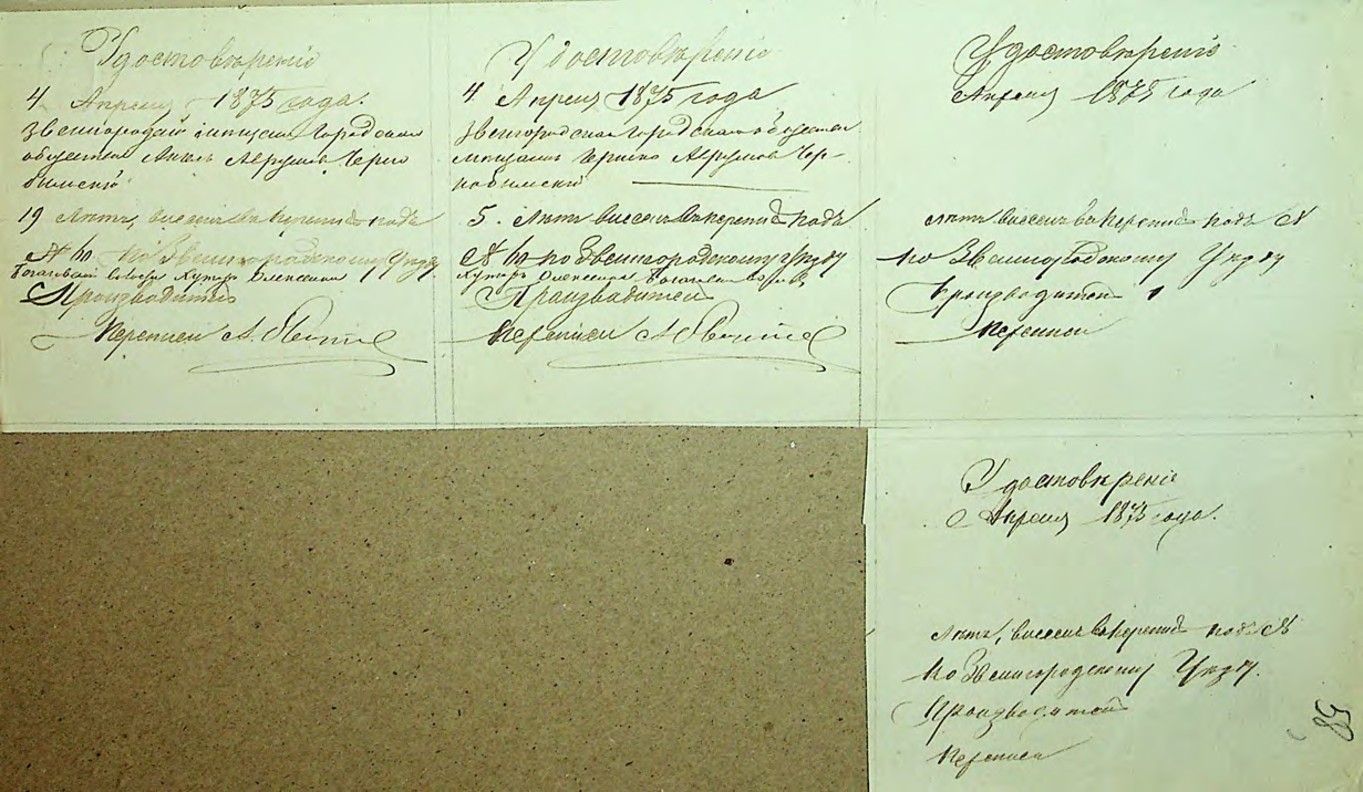 Удостовѣреніе
4 Апреля 1875 года.
Звенигородской Городской
общества Аврумов Черно
бильскій
19 лѣтъ, внесенъ въ перепись подъ
№ 60 по Звенигородскому Уезду.
Хуторъ
Производитель
Переписи А.
Удостовѣреніе
4 Апреля 1875 года
Звенигородская Городская обществен
мѣщанин Аврумов Чер-
нобильский
5. лѣтъ внесенъ въ перепись подъ
№ 60 по Звенигородскому Уезду
Хуторъ
Производитель
Переписи А.
Удостовѣреніе
Апреля 1875 года
лѣтъ внесенъ въ перепись подъ №
по Звенигородскому Уезду
Производитель
Переписи
Удостовѣреніе
Апреля 1875 года.
лѣтъ, внесенъ въ перепись подъ №
по Звенигородскому Уезду.
Производитель
Переписи
89